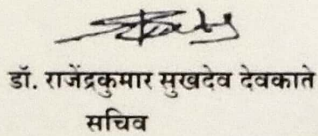 डॉ. राजेंद्रकुमार सुखदेव देवकाते
सचिव